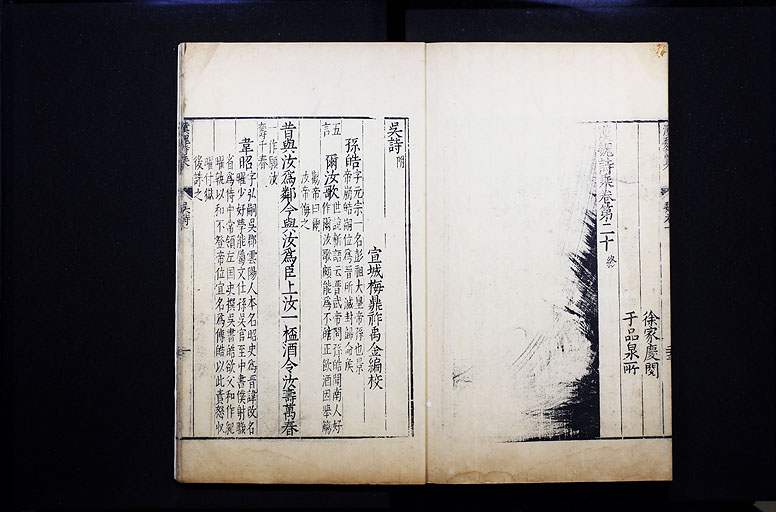 漢魏詩乘卷第二十 終
徐家慶閱
于品泉所
吳詩 附
宣城梅鼎祚禹金編校
孫皓 字元宗一名彭祖大皇帝孫也景
帝崩皓嗣位為晉所滅封歸命侯
爾汝歌 世說新語云晉武帝問孫皓聞南人好
作爾汝歌頗能為不皓正飲酒因舉觴
勸帝曰
汝帝悔之
五言
昔與汝為鄰今與汝為臣上汝一桮酒令汝壽萬春
一作願汝
壽千春
韋昭 字弘嗣吳郡雲陽人本名昭史為晉諱改名
曜少好學能屬文仕孫吳官至中書僕射職
省為侍中常領左國史撰吳書皓欲父和作紀
曜執以和不登帝位宜名為傳皓以此責怒收
曜付獄
後誅之
吳詩